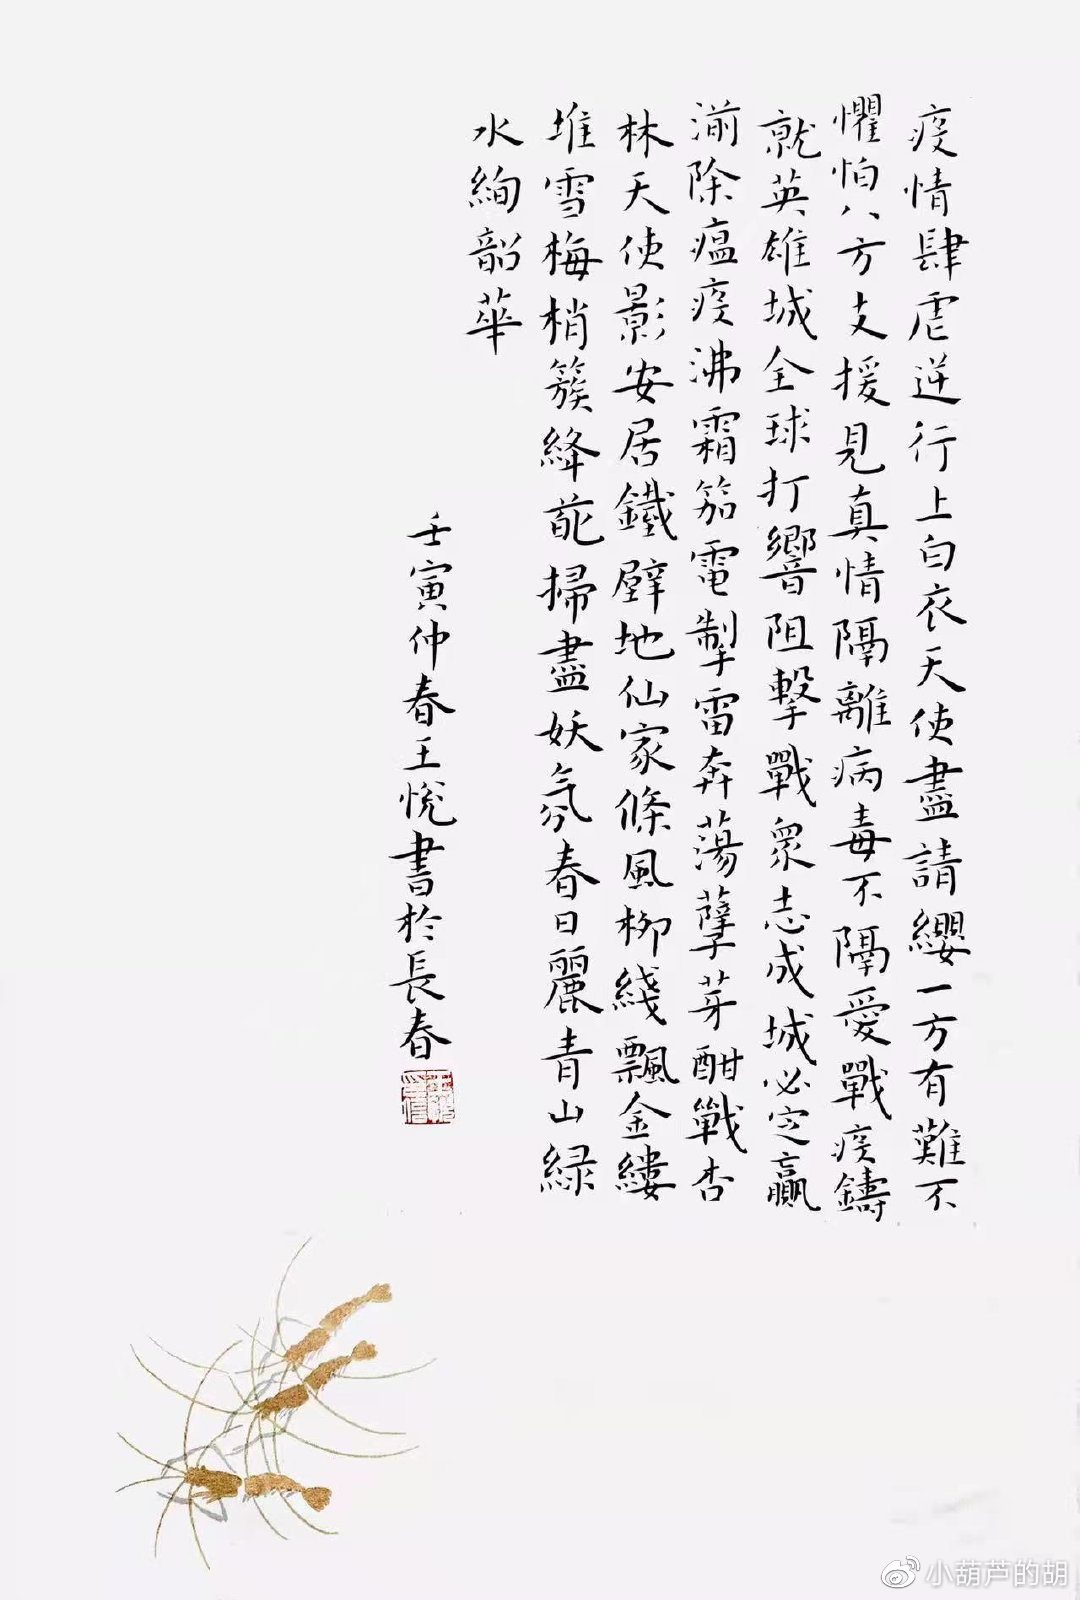 疫情肆虐逆行上白衣天使盡請纓一方有難不
懼怕八方支援見真情隔離病毒不隔愛戰疫鑄
就英雄城全球打響阻擊戰眾志成城必定贏
湔除瘟疫沸霜笳電掣雷奔蕩孽芽酣戰杏
林天使影安居鐵壁地仙家條風柳綫飄金縷
堆雪梅梢簇絳葩掃盡妖氛春日麗青山緑
水絢韶華
壬寅仲春王悅書於長春
小葫芦的胡